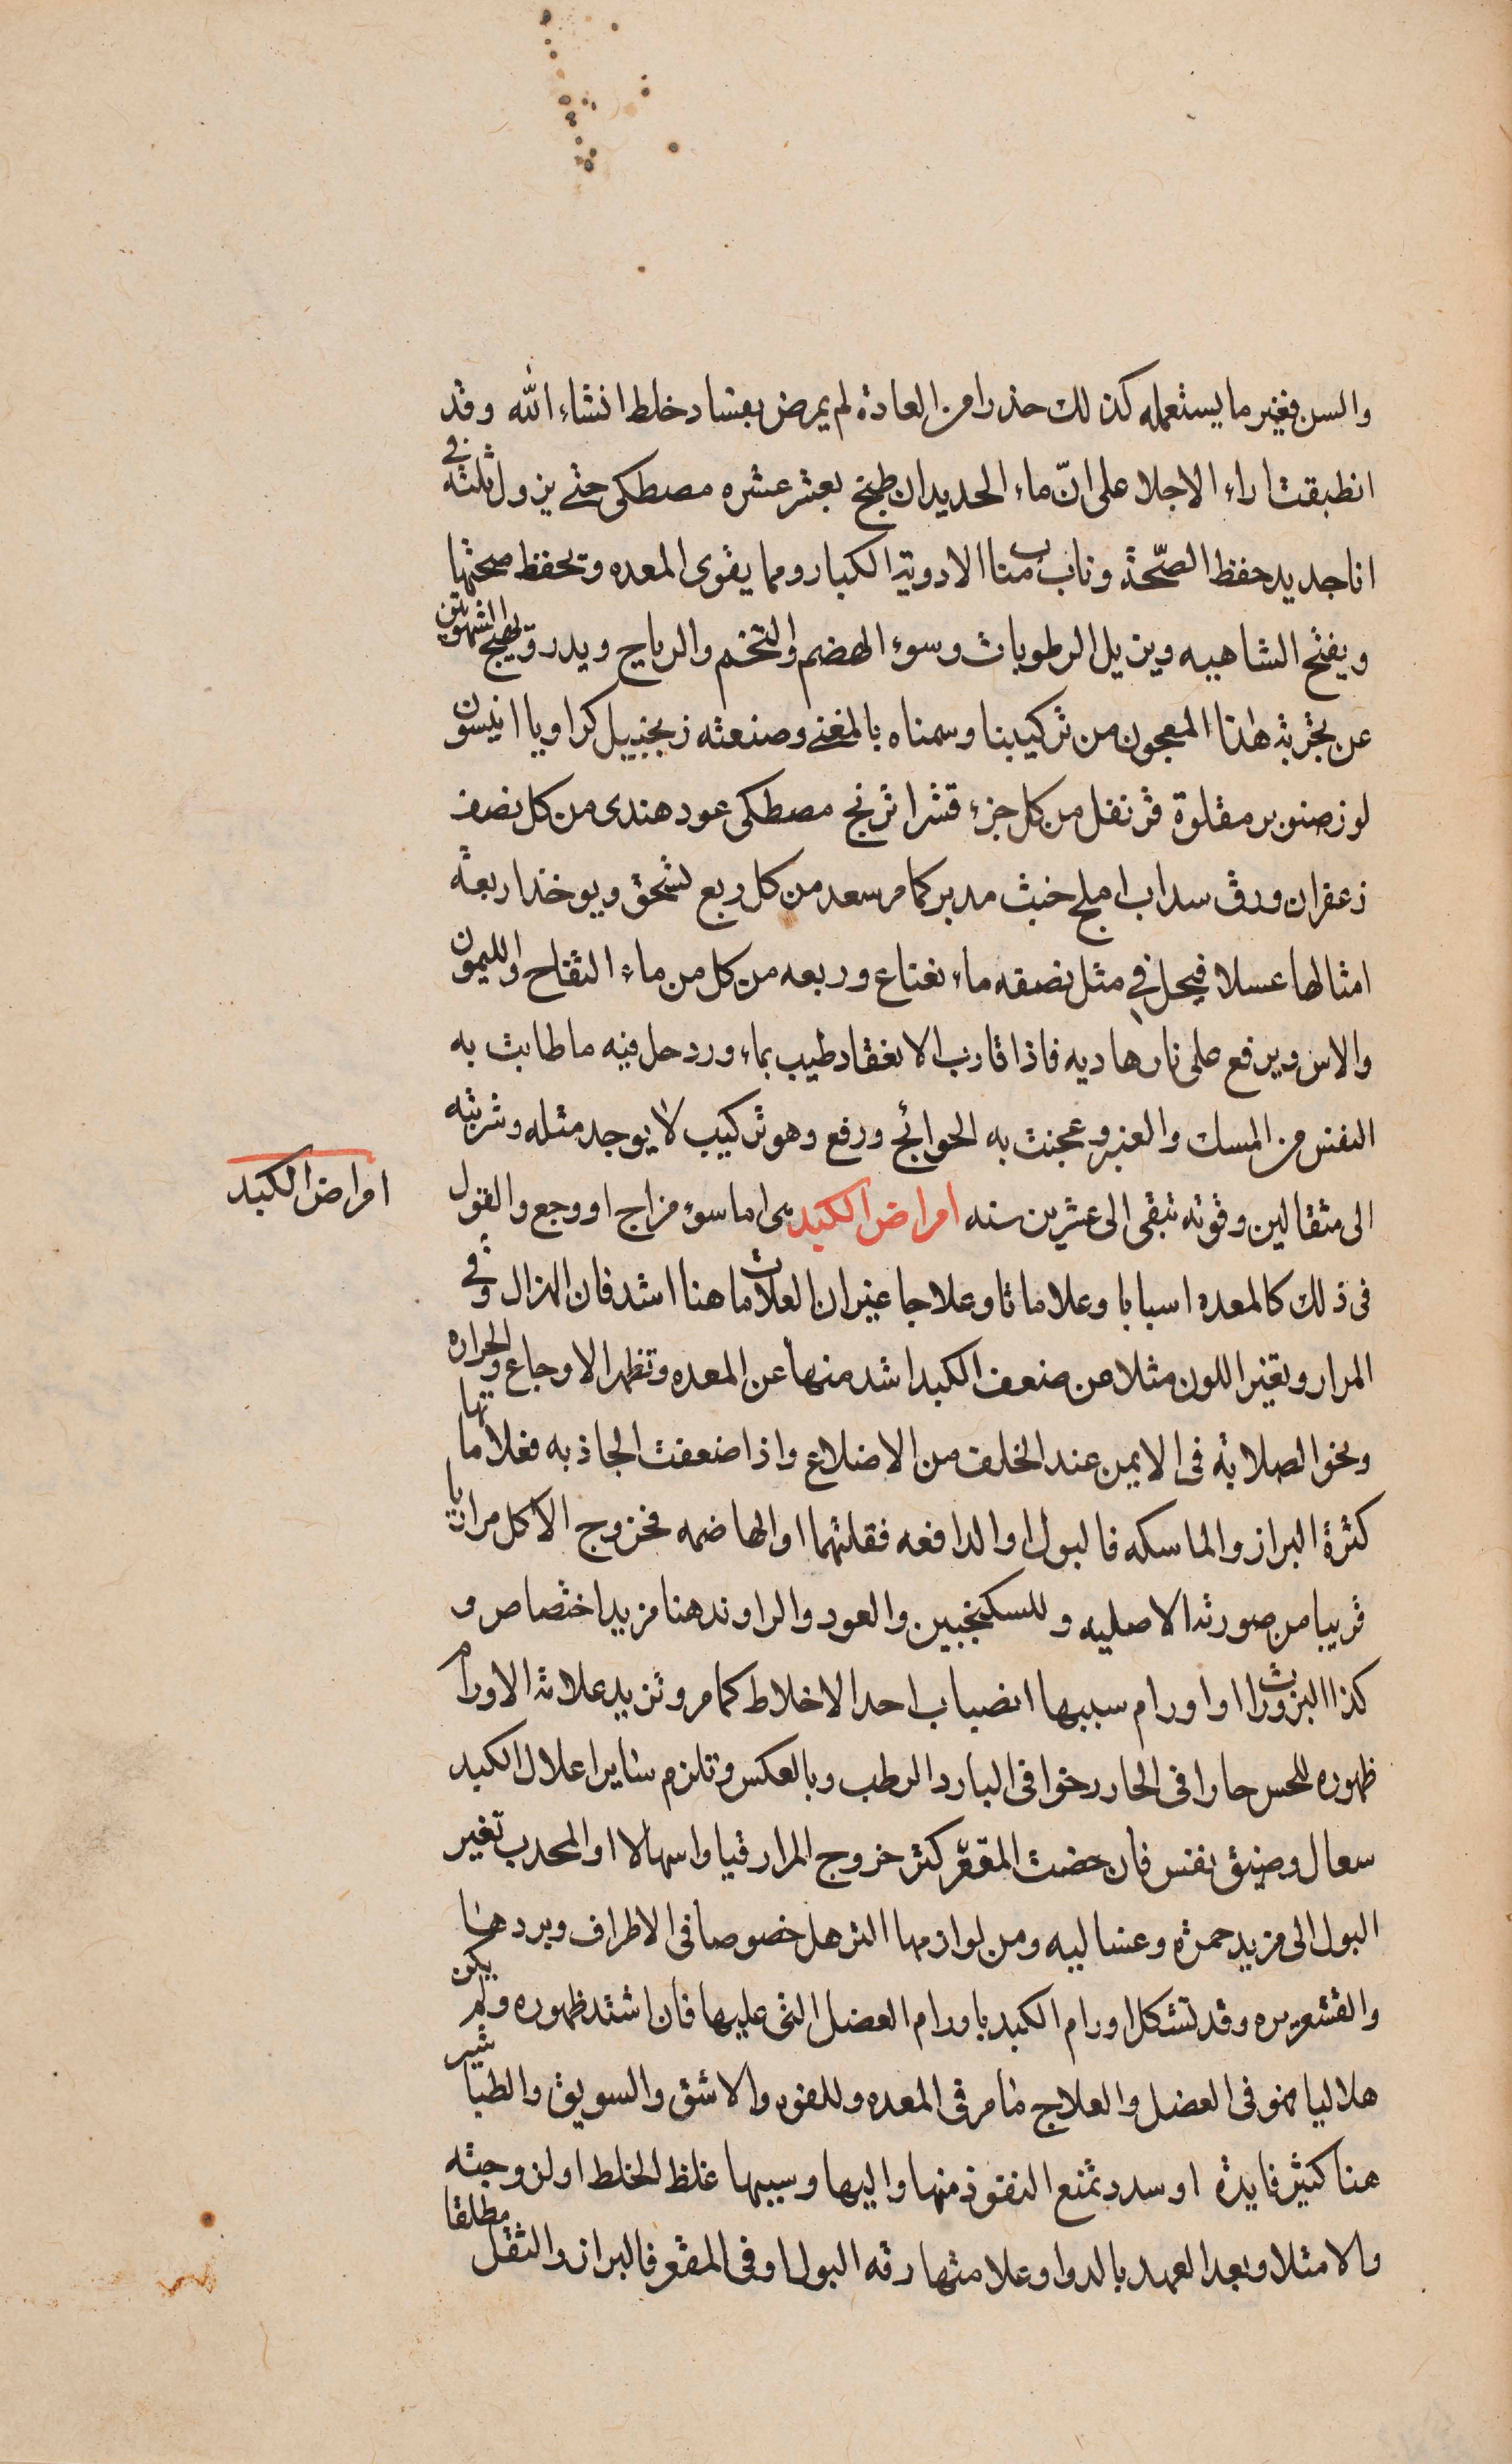 والسن فغير ما يستعمله كذلك حذرا من العادة لم يمرض بفساد خلط انشاء الله وقد
انطبقت اراء الاجلا على انّ ماء الحديد ان طبخ بعشر عشره مصطكى حتى يزول ثلثه فى
انا جديد حفظ الصّحة وناب مناب الادوية الكبار ومما يقوى المعده وتحفظ صحتها
ويفتح الشاهيه ويزيل الرطوبات وسوء الهضم والتخم والرياح ويدر وتهيج الشهوتين
عن تجربة هذا المعجون من تركيبنا وسمناه بالمغنى وصنعته زنجبيل كراويا انيسون
لوز صنوبر مقلوة قرنفل من كل جزء قشر اترنج مصطكى عود هندى من كل نصف
زعفران ورق سداب املج خبث مدبر كما مر سعد من كل ربع تسحق ويوخذ اربعة
امثالها عسلا فيحل فى مثل نصفه ماء نعناع وربعه من كل من ماء التفاح والليمون
والاس ويرفع على نار هاديه فاذا قارب الانعقاد طيب بماء ورد حل فيه ما طابت به
النفس من المسك والعنبر وعجنت به الحوائج ورفع وهو تركيب لا يوجد مثله وشربته
الى مثقالين وقوته تبقى الى عشرين سنه امراض الكبد هى اما سوء مزاج او وجع والقول
امراض الكبد
فى ذلك كالمعده اسبابا وعلاماتا وعلاجا غير ان العلامات هنا اشد فان الهزال وقى
المرار وتغير اللون مثلا عن ضعف الكبد اشد منها عن المعده وتظهر الاوجاع والحراره
ونحو الصلابة فى الايمن عند الخلف من الاضلاع واذا ضعفت الجاذبه فعلاماتها
كثرة البراز والماسكه فالبول او الدافعه فقلتهما او الهاضمه فخروج الاكل مراريا
قريبا من صورته الاصليه وللسكنجبين والعود والراوند هنا مزيد اختصاص و
كذا البزورات او اورام سببها انصباب احد الاخلاط كما مر وتزيد علامة الاورام
ظهوره للحس حارا فى الحار رخوا فى البارد الرطب وبالعكس وتلزم ساير اعلال الكبد
سعال وضيق نفس فان خصت المقعّر كثر خروج المرار قيا واسهالا او المحدب تغير
البول الى مزيد حمرة وغساليه ومن لوازمها الترهل خصوصا فى الاطراف وبردها
والقشعريره وقد تشكل اورام الكبد باورام العضل التى عليها فان اشتد ظهوره ولم يكن
هلاليا فهو فى العضل والعلاج ما مر فى المعده وللفوه والاشق والسويق والطباشير
هنا كثير فايدة او سدد تمنع النفوذ منها واليها وسببها غلظ الخلط او لزوجته
والامتلا وبعد العهد بالدوا وعلامتها رقه البول او فى المقعر فالبراز والثقل مطلقا